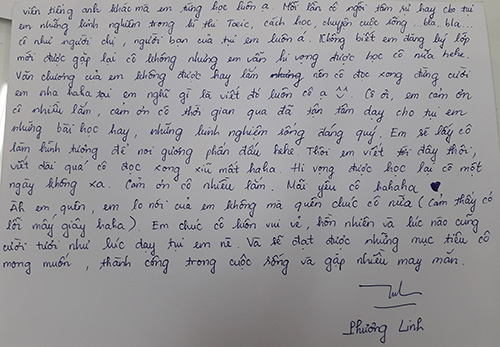 viên tiếng anh khác mà em từng học luôn ạ. Mỗi lần cô ngồi tâm sự hay cho tụi
em những kinh nghiệm trong kì thi Toeic, cách học, chuyện cuộc sống ... bla, bla...
Cô như người chị, người bạn của tụi em luôn á. Không biết em đăng ký lớp
mới được gặp lại cô không nhưng em vẫn hi vọng được học cô nữa hehe.
Văn chương của em không được hay lắm nhưng nên cô đọc xong đừng cười
em nha haha tại em nghĩ gì là viết đó luôn cô ạ. Cô ơi, em cảm ơn
cô nhiều lắm, cảm ơn cô thời gian qua đã tận tâm dạy cho tụi em
những bài học hay, những kinh nghiệm sống đáng quý. Em sẽ lấy cô
làm hình tượng để noi gương phấn đấu hehe. Thôi em viết tới đây thôi,
viết dài quá cô đọc xong xỉu mất haha. Hi vọng được học lại cô một
ngày không xa. Cảm ơn cô nhiều lắm. Mãi yêu cô hahaha ♥
Ah em quên, em lo nói của em không mà quên chúc cô nữa (Cảm thấy có
lỗi mấy giây haha). Em chúc cô luôn vui vẻ, hồn nhiên và lúc nào cũng
cười tươi như lúc dạy tụi em nè. Và sẽ đạt được những mục tiêu cô
mong muốn, thành công trong cuộc sống và gặp nhiều may mắn.
Phương Linh